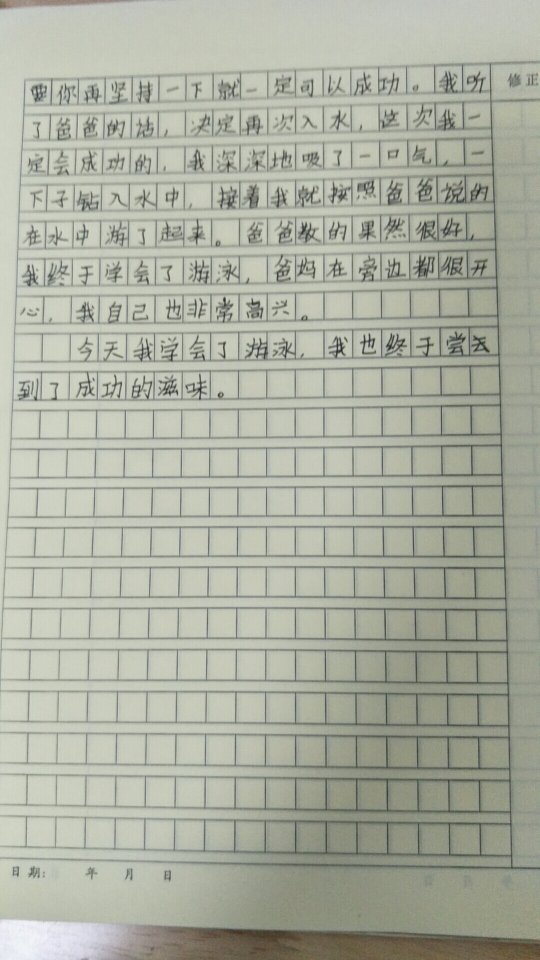 要你再坚持一下就一定可以成功。我听
修正
了爸爸的话，决定再次入水，这次我一
定会成功的，我深深地吸了一口气，一
下子钻入水中，接着我就按照爸爸说的
在水中游了起来。爸爸教的果然很好，
我终于学会了游泳，爸妈在旁边都很开
心，我自己也非常高兴。
今天我学会了游泳，我也终于尝
到了成功的滋味。
日期: 年 月 日